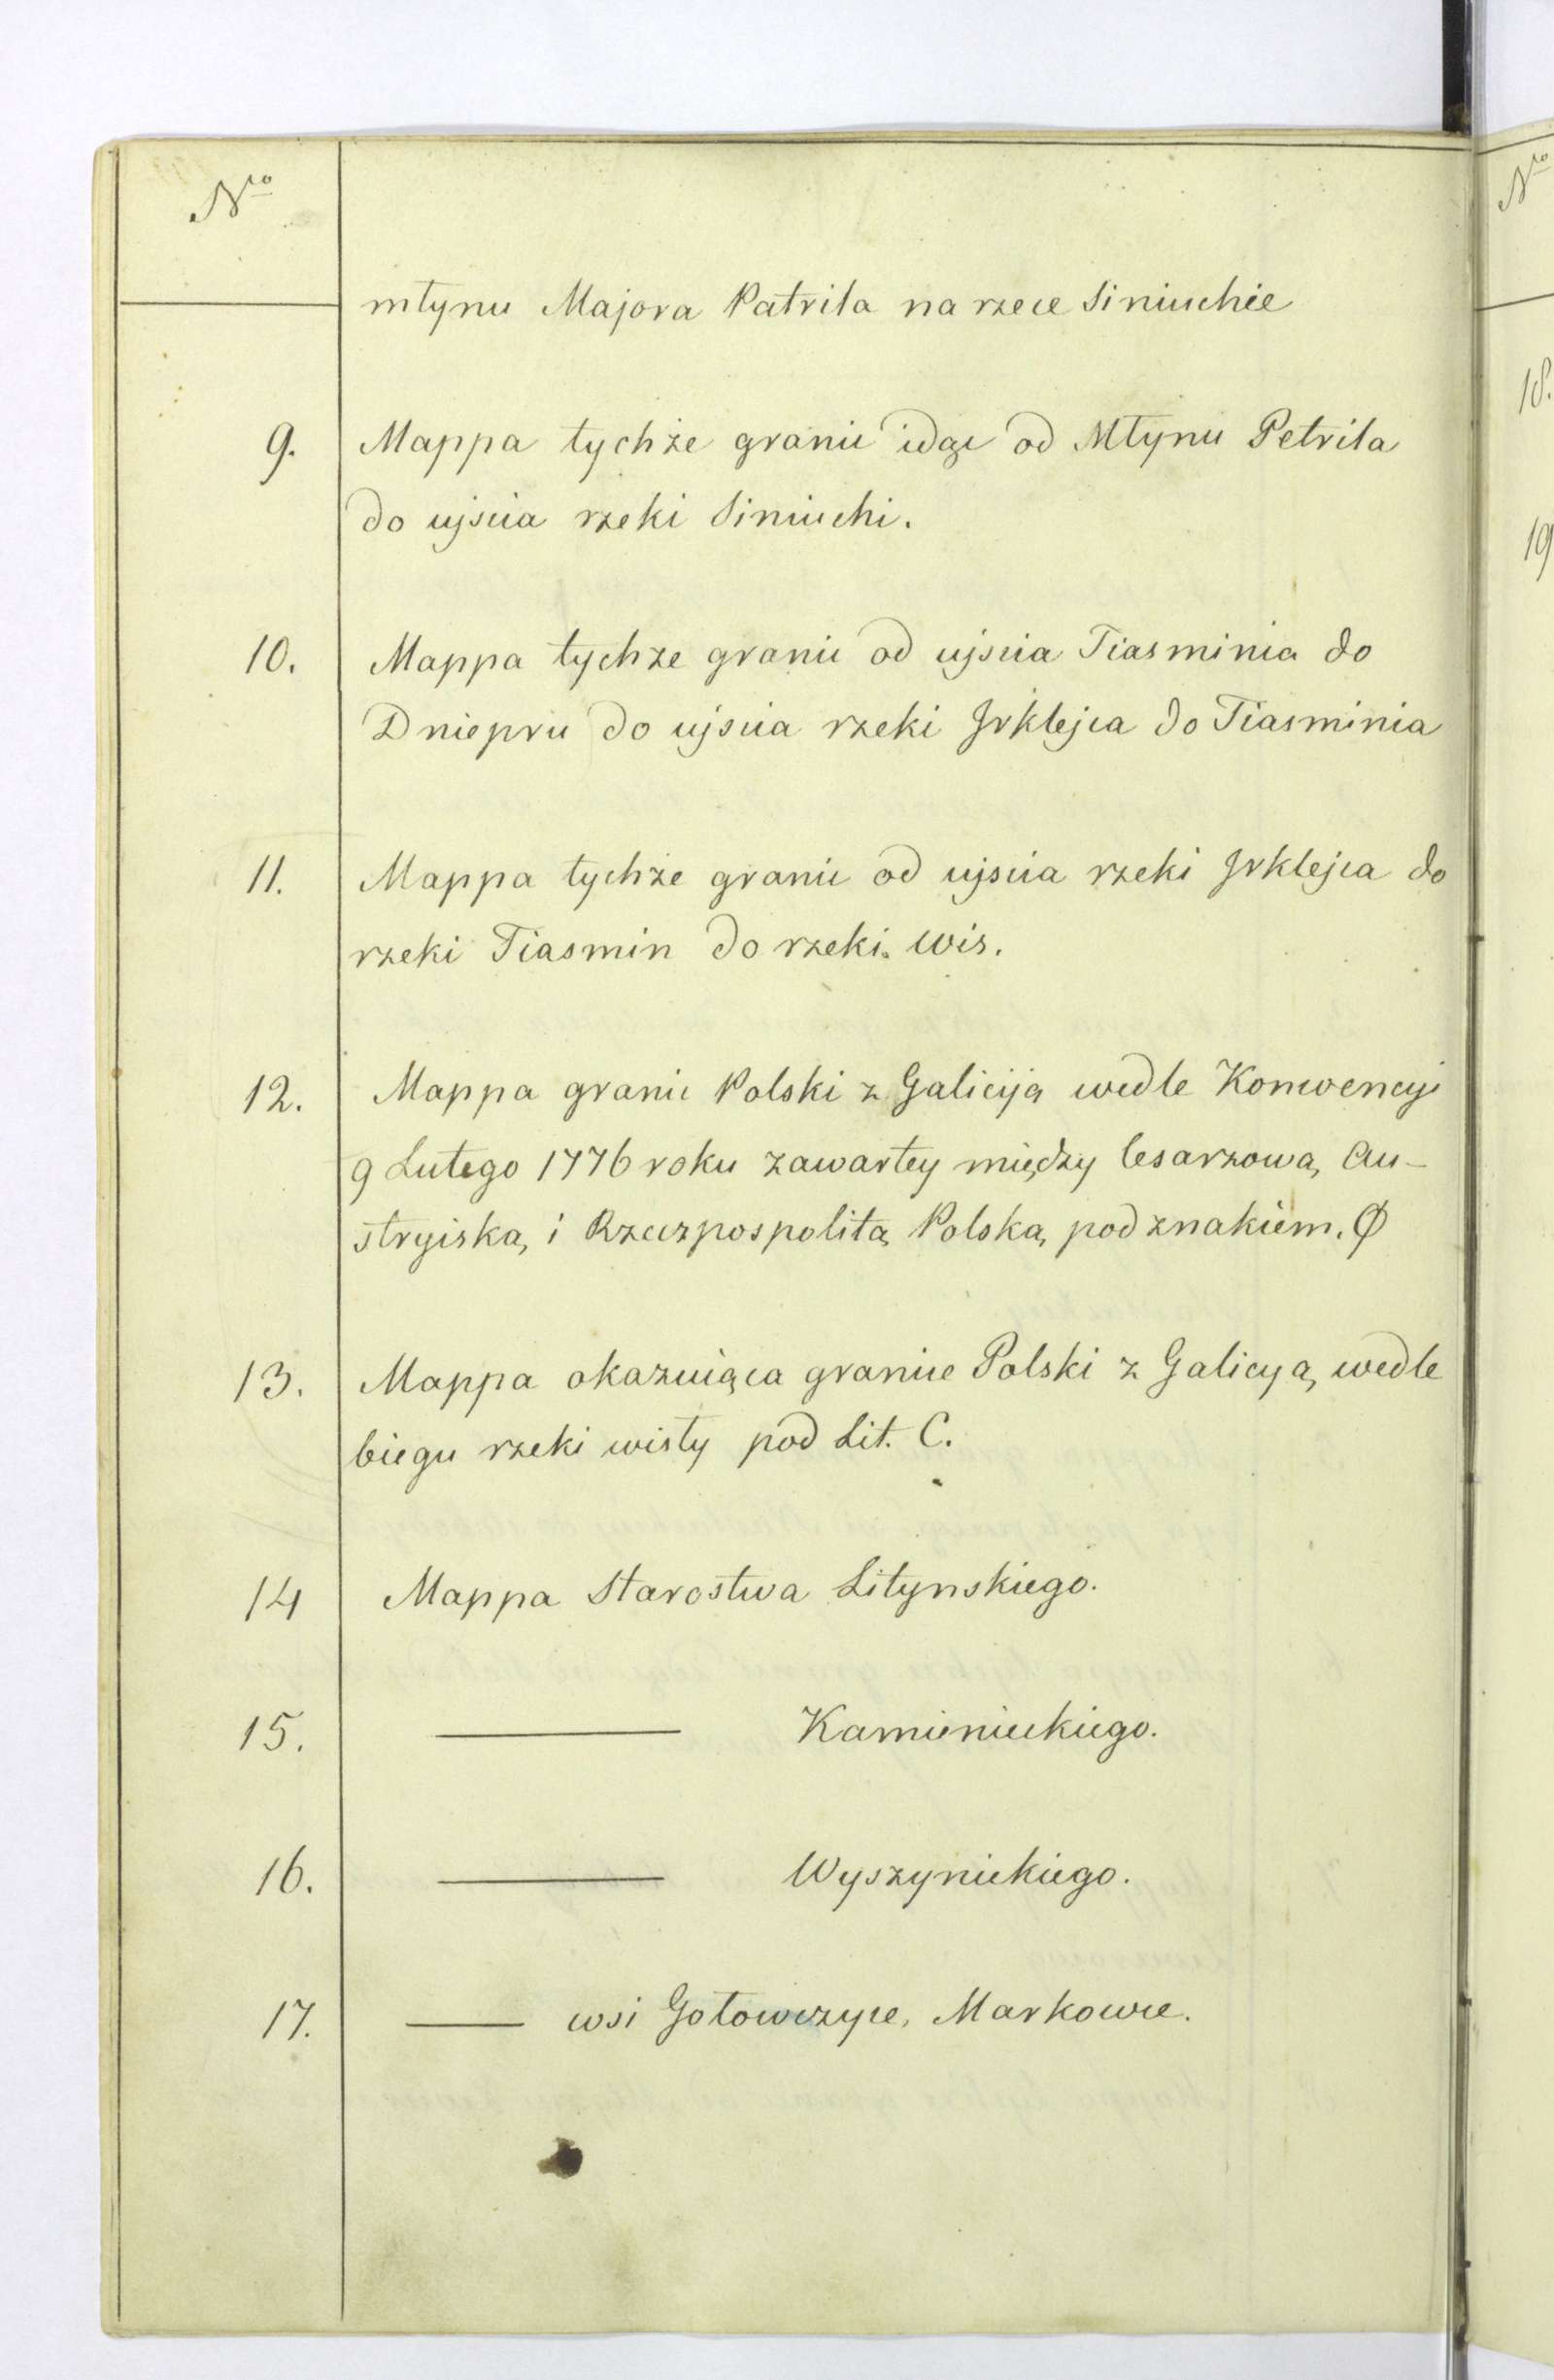 Nro
młynu Majora Patrila na rzece Siniuchie
9. Mappa tychże granic idąc od Młynu Petrila
do ujscia rzeki Siniuchi.
10. Mappa tychże granic od ujscia Tiasminia do
Dniepru do ujscia rzeki Irklejca do Tiasminia
11. Mappa tychże granic od ujscia rzeki Irklejca do
rzeki Tiasmin do rzeki Wis.
12. Mappa granic Polski z Galiciją wedle Konwencyi
9 Lutego 1776 roku zawartey między Cesarzową Au-
stryiską i Rzeczpospolitą Polską pod znakiem. Ø
13. Mappa okazuiąca granice Polski z Galicyą wedle
biegu rzeki wisły pod Lit. C.
14 Mappa Starostwa Litynskiego.
15. ——— Kamienieckiego.
16. ——— Wyszynickiego.
17. —— wsi Gołowczyce, Markowce.
Nro
18.
19